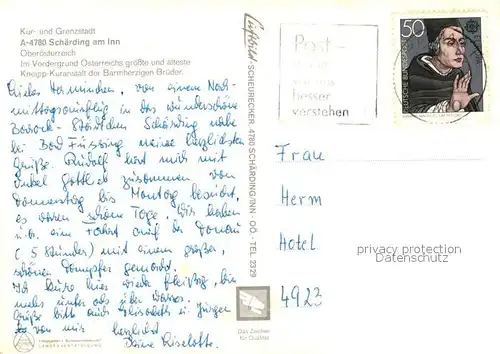 Kur- und Grenzstadt
A-4780 Schärding am Inn
Oberösterreich
Im Vordergrund Österreichs größte und älteste
Kneipp-Kuranstalt der Barmherzigen Brüder.
Liebes Herminchen, von einem Nach-
mittagsausflug in das wunderschöne
Barock-Städtchen Schärding nahe
bei Bad Füssing meine herzlichsten
Grüße. Rudolf hat mich mit
Onkel Gottlieb zusammen von
Donnerstag bis Montag besucht,
es waren schöne Tage. Wir haben
u.a. eine Fahrt auf der Donau
(5 Stunden) mit einem großen,
schönen Dampfer gemacht.
Ich kure hier wieder fleißig, bin
mehr unter als über Wasser.
Grüße bitte auch Elisabeth u. Jürgen
von mir herzlichst
Deine Liselotte.
Luftbild/SCHEURECKER·4780 SCHÄRDING/INN·OÖ.·TEL. 2329
Das Zeichen
für Qualität
Post-
besser
verstehen
50
DEUTSCHE BUNDESPOST
Frau
Herm
Hotel
4923
privacy protection
(AnsichtskartenVersand.com)